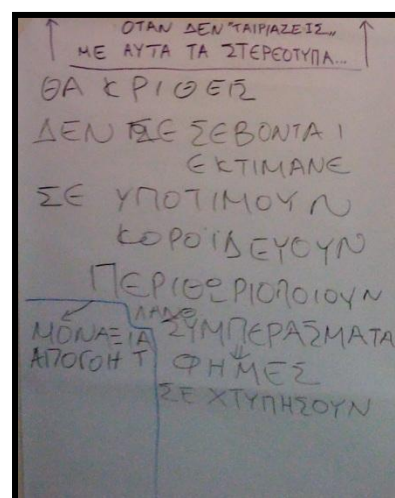 ΟΤΑΝ ΔΕΝ "ΤΑΙΡΙΑΖΕΙΣ"
ΜΕ ΑΥΤΑ ΤΑ ΣΤΕΡΕΟΤΥΠΑ...
ΘΑ ΚΡΙΘΕΙΣ
ΔΕΝ ΣΕ ΣΕΒΟΝΤΑΙ
ΕΚΤΙΜΑΝΕ
ΣΕ ΥΠΟΤΙΜΟΥΝ
ΚΟΡΟΪΔΕΥΟΥΝ
ΠΕΡΙΘΩΡΙΟΠΟΙΟΥΝ
ΛΑΘΟΣ
ΜΟΝΑΞΙΑ ΣΥΜΠΕΡΑΣΜΑΤΑ
ΑΠΟΓΟΗΤ ΦΗΜΕΣ
ΣΕ ΧΤΥΠΗΣΟΥΝ